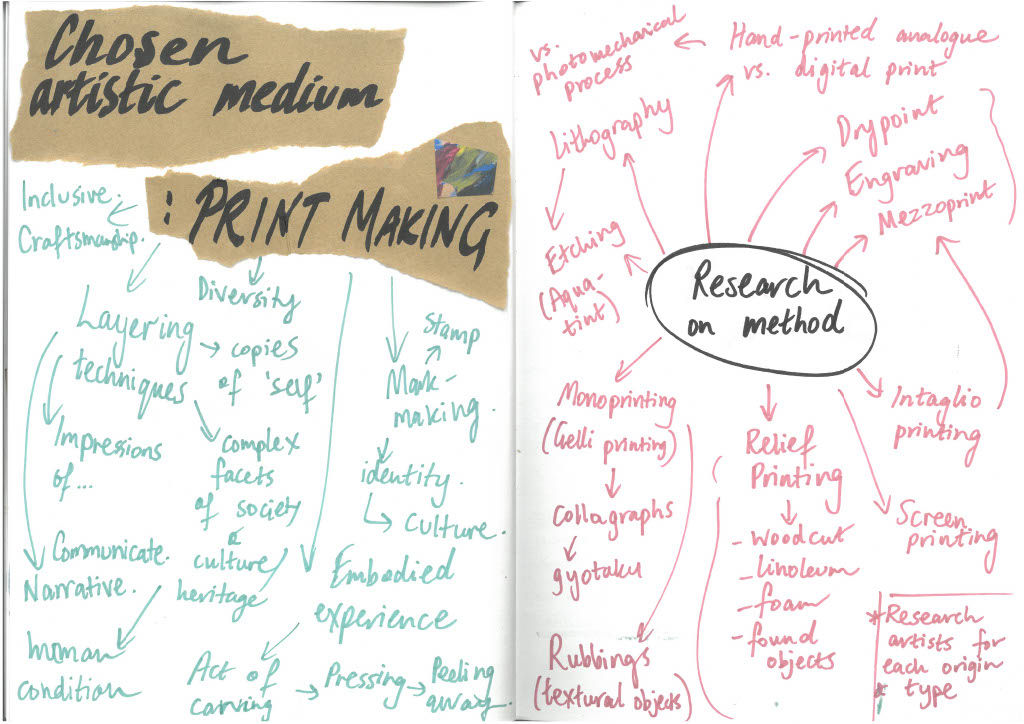 Chosen
artistic medium
: PRINT MAKING
Inclusive.
Craftsmanship.
Layering
techniques
Impressions
of...
Communicate.
Narrative.
human
condition
Diversity
copies
of 'self'
complex
facets
of society
&
culture/
heritage
stamp
Mark-
making.
identity.
culture.
Embodied
experience
Act of
carving
Pressing
Peeling
away.
Research
on method
vs.
photomechanical
process
Hand-printed analogue
vs. digital print
Lithography
Etching
(Aqua-
tint)
Drypoint
Engraving
Mezzoprint
Monoprinting
(Gelli printing)
Collagraphs
gyotaku
Rubbings
(textural objects)
Relief
Printing
- woodcut
- linoleum
- foam
- found
objects
Intaglio
printing
Screen
printing
*Research
artists for
each origin
type